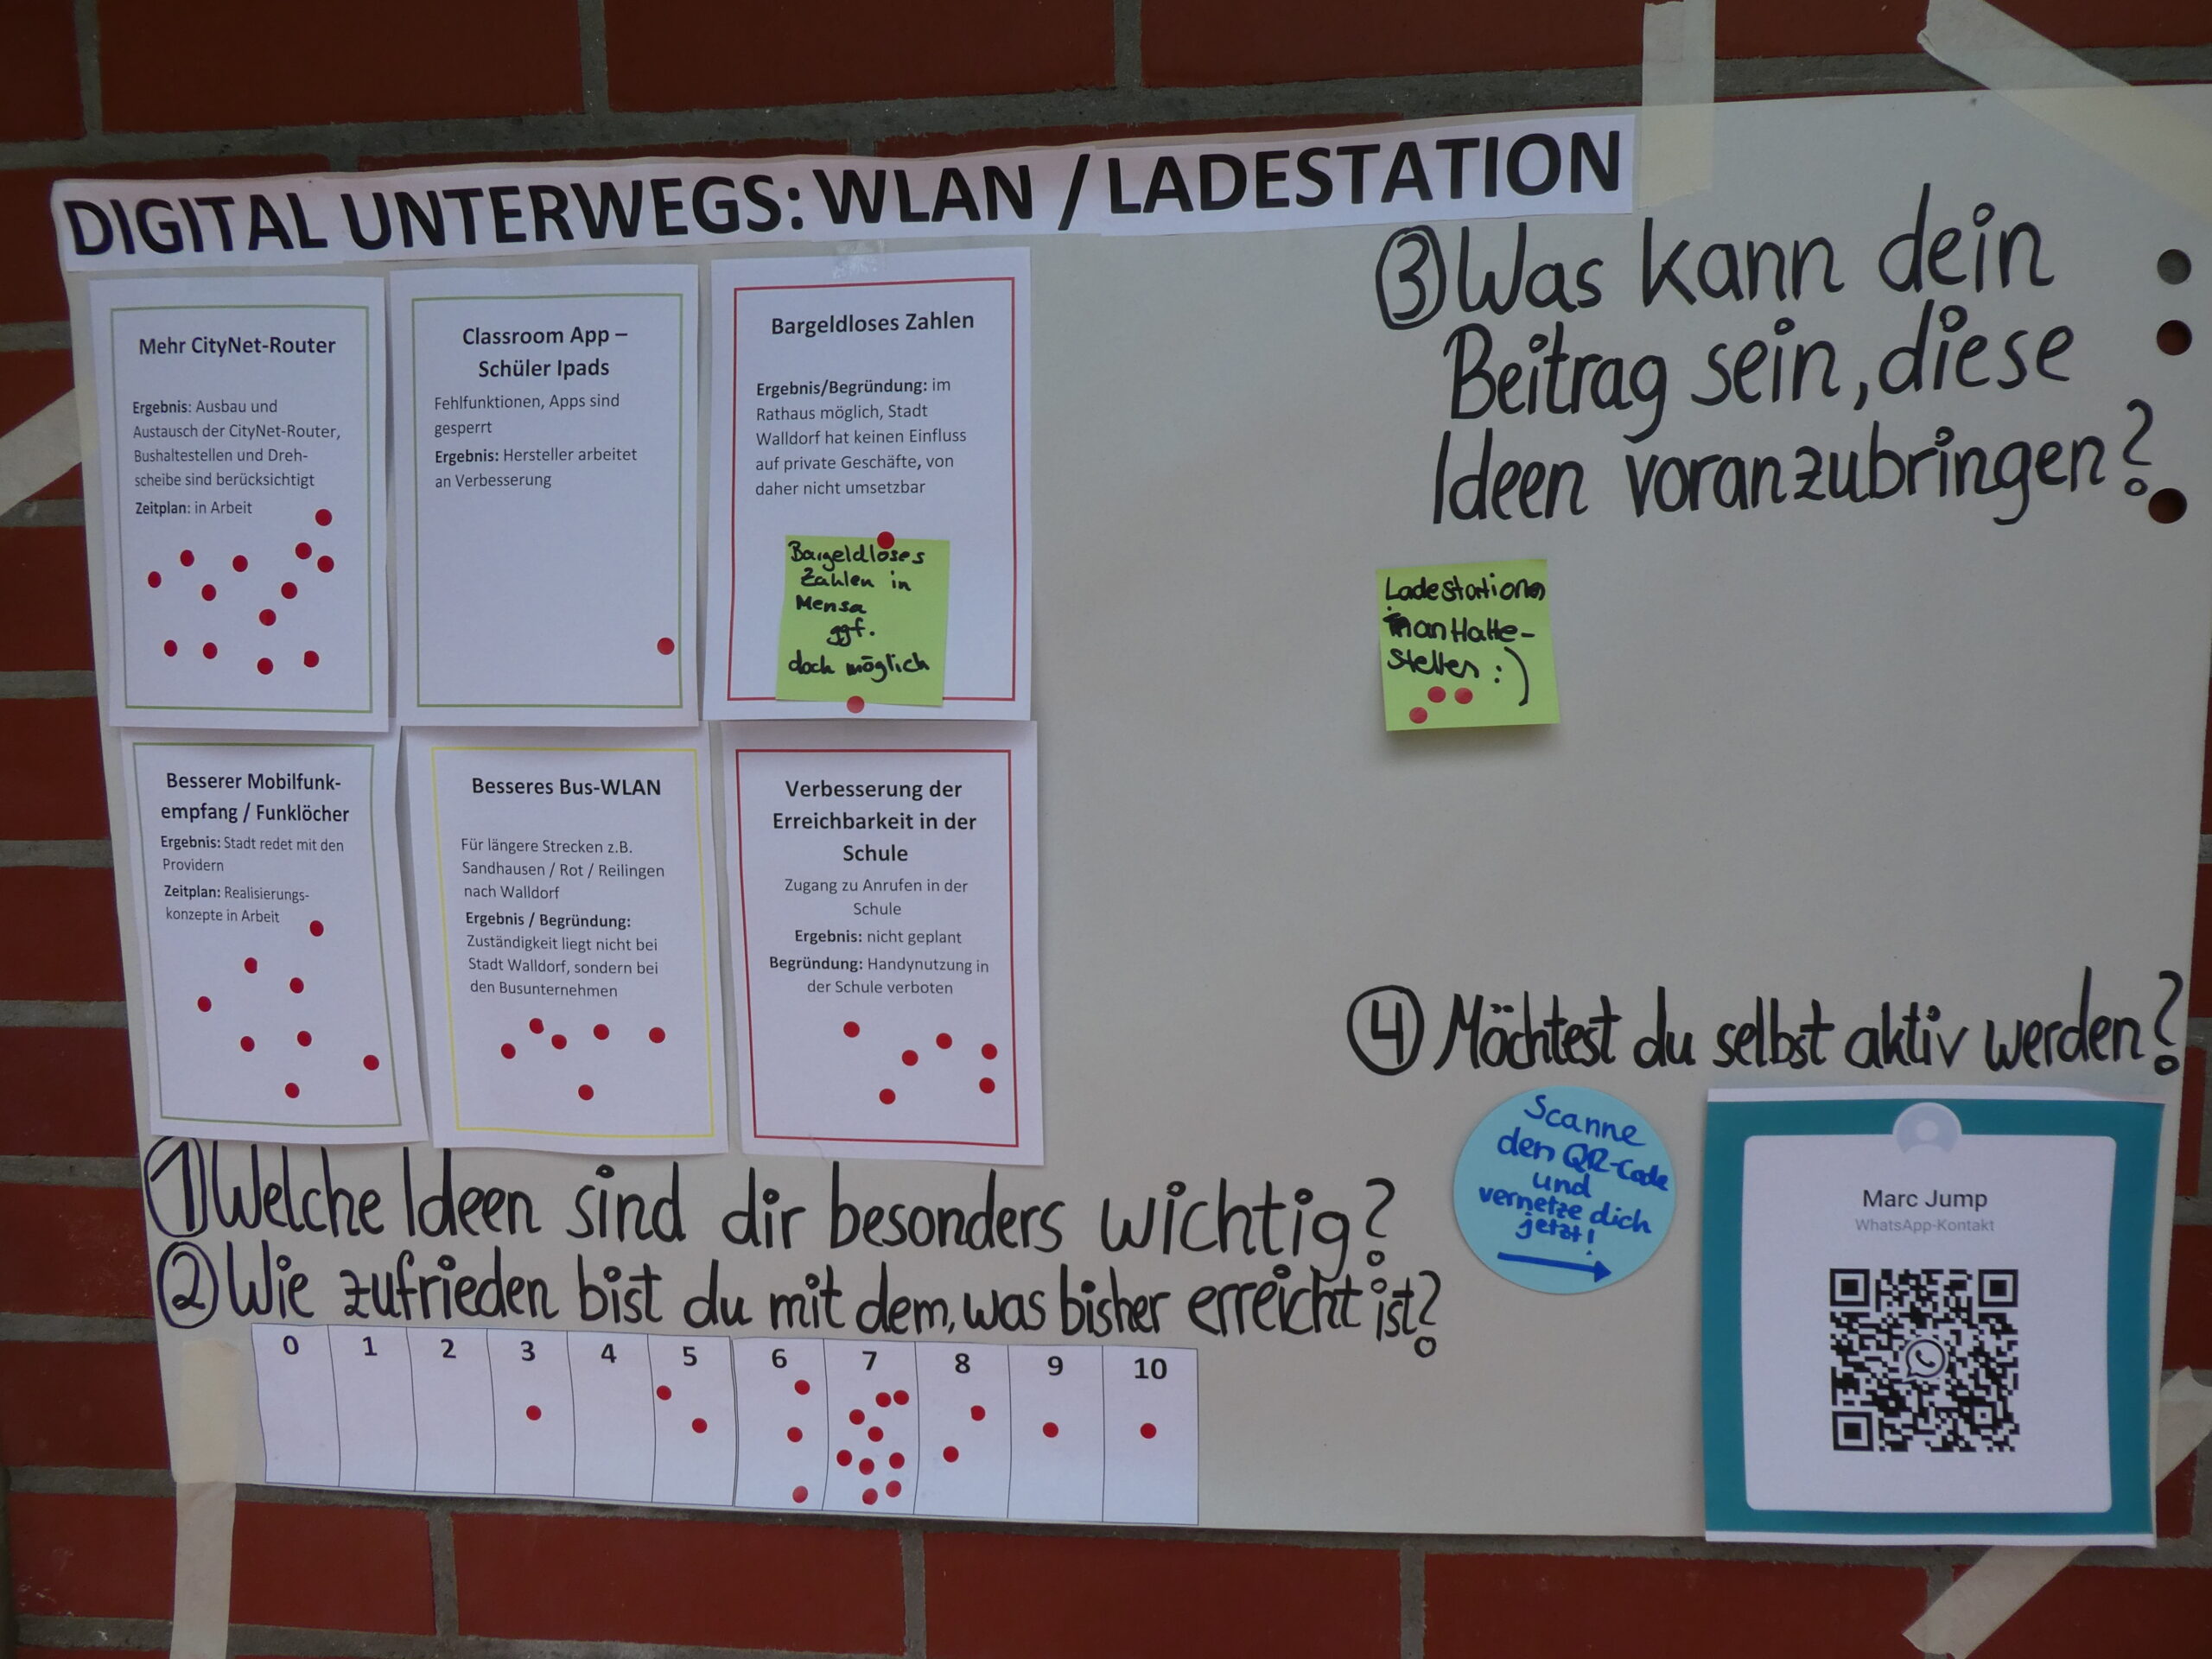 DIGITAL UNTERWEGS: WLAN / LADESTATION
Mehr CityNet-Router
Ergebnis: Ausbau und
Austausch der CityNet-Router,
Bushaltestellen und Dreh-
scheibe sind berücksichtigt
Zeitplan: in Arbeit
Classroom App –
Schüler Ipads
Fehlfunktionen, Apps sind
gesperrt
Ergebnis: Hersteller arbeitet
an Verbesserung
Bargeldloses Zahlen
Ergebnis/Begründung: im
Rathaus möglich, Stadt
Walldorf hat keinen Einfluss
auf private Geschäfte, von
daher nicht umsetzbar
Bargeldloses
Zahlen in
Mensa
ggf.
doch möglich
Besserer Mobilfunk-
empfang / Funklöcher
Ergebnis: Stadt redet mit den
Providern
Zeitplan: Realisierungs-
konzepte in Arbeit
Besseres Bus-WLAN
Für längere Strecken z.B.
Sandhausen / Rot / Reilingen
nach Walldorf
Ergebnis / Begründung:
Zuständigkeit liegt nicht bei
Stadt Walldorf, sondern bei
den Busunternehmen
Verbesserung der
Erreichbarkeit in der
Schule
Zugang zu Anrufen in der
Schule
Ergebnis: nicht geplant
Begründung: Handynutzung in
der Schule verboten
1 Welche Ideen sind dir besonders wichtig?
2 Wie zufrieden bist du mit dem, was bisher erreicht ist?
0 1 2 3 4 5 6 7 8 9 10
3 Was kann dein
Beitrag sein, diese
Ideen voranzubringen?
Ladestationen
an Halte-
stellen :)
4 Möchtest du selbst aktiv werden?
Scanne
den QR-Code
und
vernetze dich
jetzt!
Marc Jump
WhatsApp-Kontakt